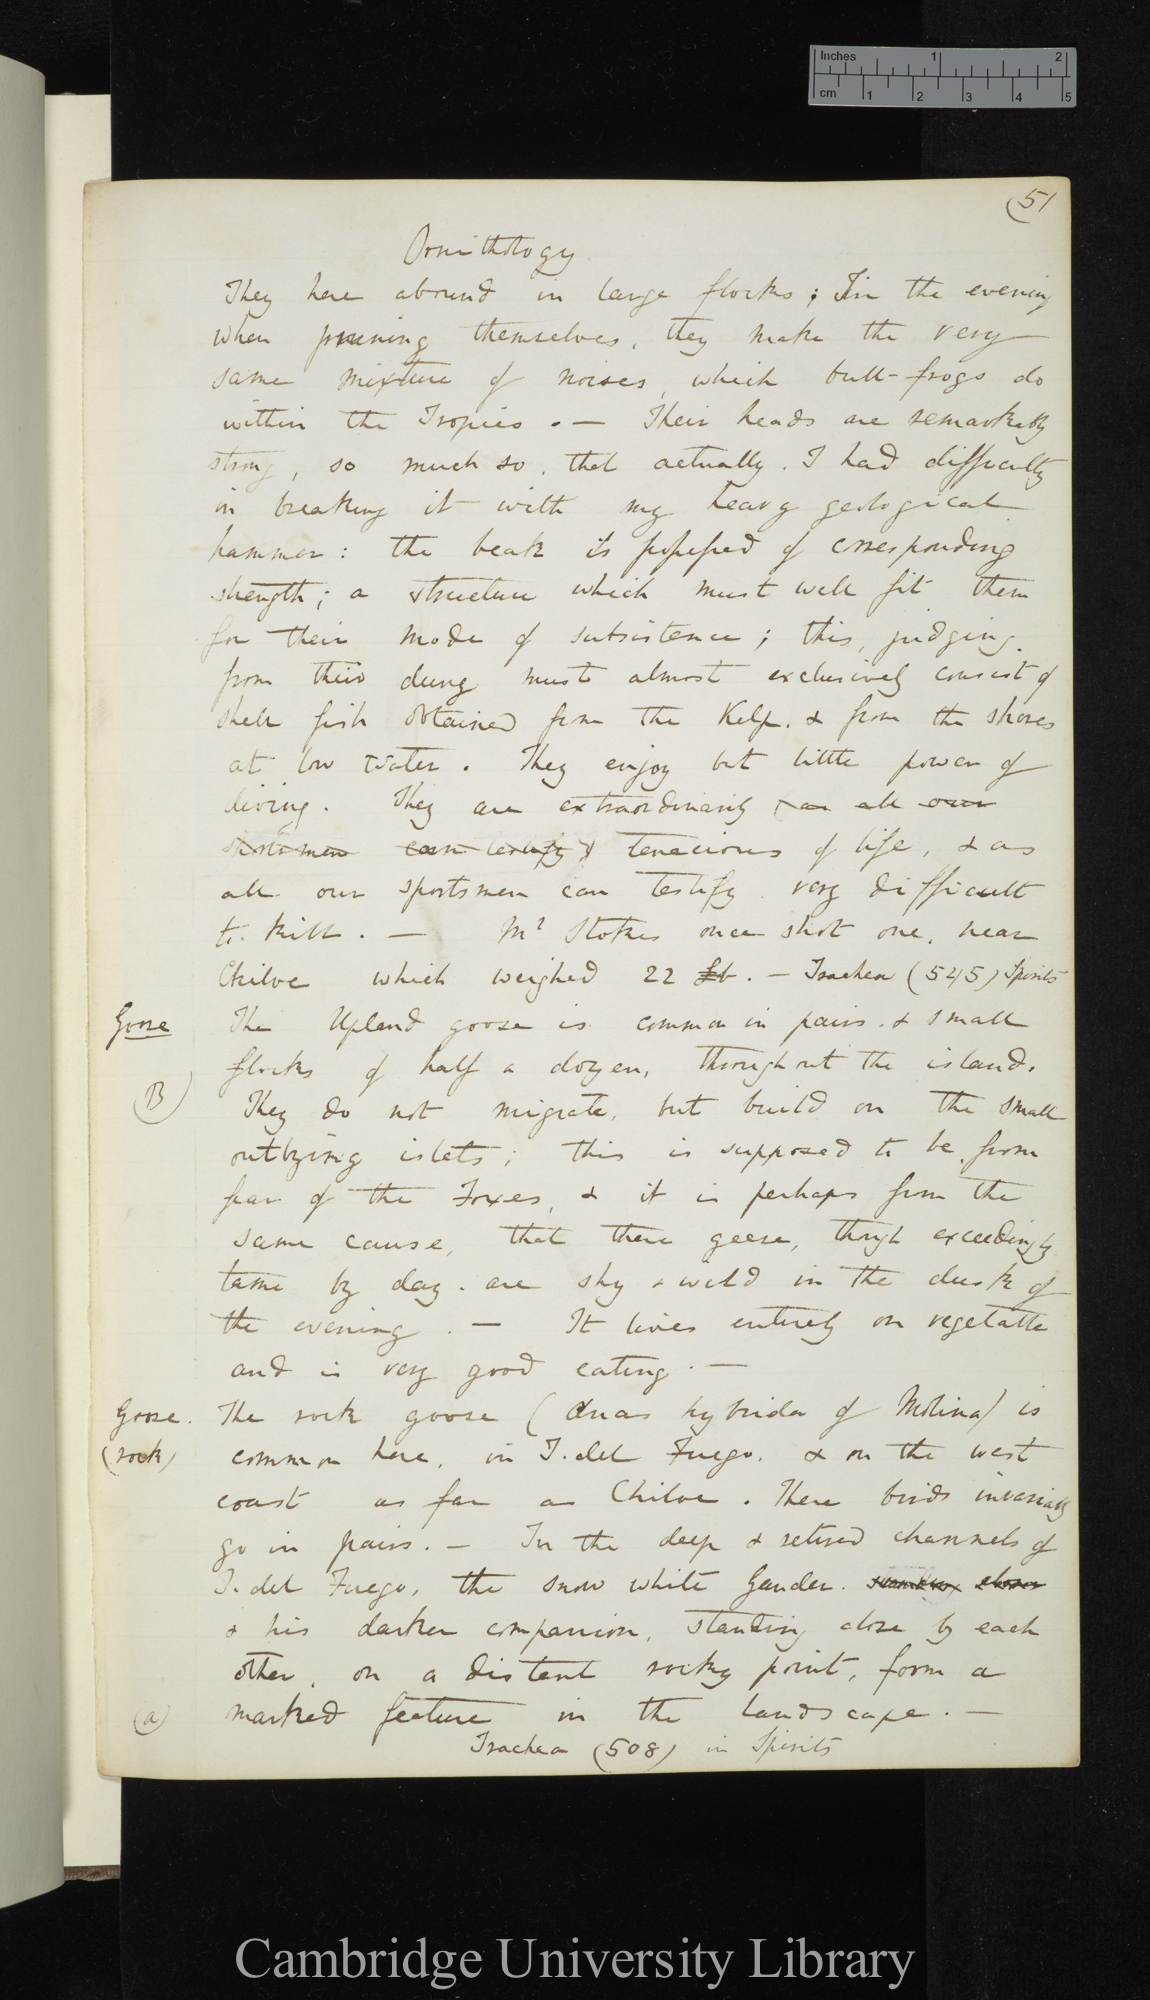 Inches 1 2
cm 1 2 3 4 5
(51
Ornithology
They here abound in large flocks; In the evening
when pruning themselves, they make the very
same mixture of noises, which bull-frogs do
within the Tropics. — Their heads are remarkably
strong, so much so, that actually I had difficulty
in breaking it with my heavy geological
hammer: the beak is possessed of corresponding
strength; a structure which must well fit them
for their mode of subsistence; this, judging
from their dung must almost exclusively consist of
shell fish obtained from the Kelp. & from the shores
at low water. They enjoy but little power of
diving. They are extraordinarily (as all our
sportsmen can testify) tenacious of life, & as
all our sportsmen can testify very difficult
to kill. — Mr Stokes once shot one, near
Chiloe which weighed 22 lb. — Trachea (545) Spirits
Goose The Upland goose is common in pairs & small
flocks of half a dozen, throughout the island.
(B) They do not migrate, but build on the small
outlying islets; this is supposed to be from
fear of the Foxes, & it is perhaps from the
same cause, that these geese, though exceedingly
tame by day. are shy & wild in the dusk of
the evening. — It lives entirely on vegetable
and is very good eating. —
Goose. The rock goose (Anas hybrida of Molina) is
(rock) common here, in T. del Fuego, & on the west
coast as far as Chiloe. These birds invariably
go in pairs. — In the deep & retired channels of
T. del Fuego, the snow white Gander.
& his darker companion, standing close by each
other, on a distant rocky point, form a
(a) marked feature in the landscape. —
Trachea (508) in Spirits
Cambridge University Library